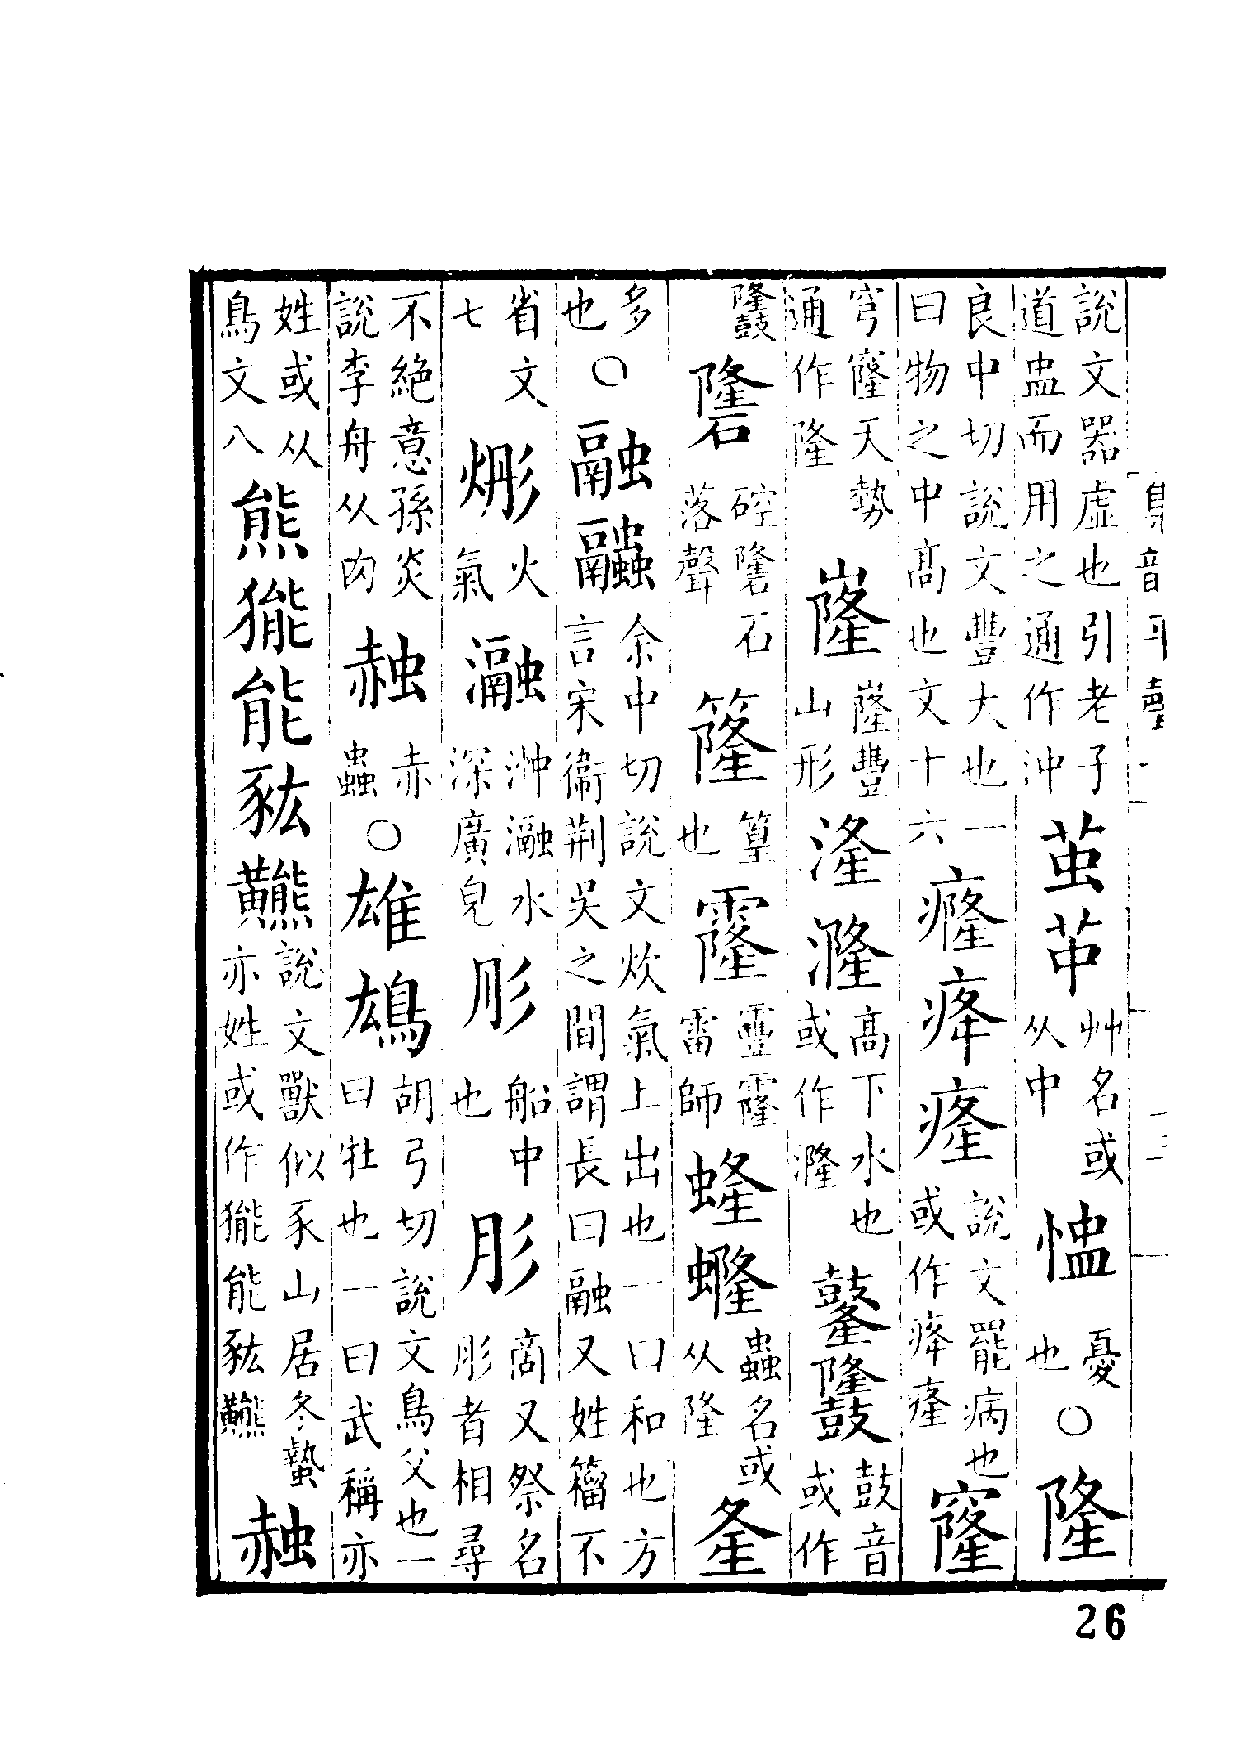 說文器虛也引老子道盅而用之通作沖茧艸名或从中憂也○隆
良中切說文豐大也一曰物之中高也文十六癃㾄說文罷病也或作㾄窿
穹窿天勢通作隆嶐嶐豐山形湰漋高下水也或作漋鼓音或作
䃧硿䃧石落聲篁也霳靊霳雷師蟲名或从隆
多也○融螎余中切說文炊氣上出也一曰和也方言宋衞荆吳之間謂長曰融又姓籀不
省文七火氣瀜沖瀜水深廣皃肜船中也肜商又祭名肜者相尋
不絕意孫炎說李舟从肉赨赤蟲○雄胡弓切說文鳥父也一曰牡也一曰武稱亦
姓或从鳥文八熊能說文獸似豕山居冬蟄亦姓或作能赨
26